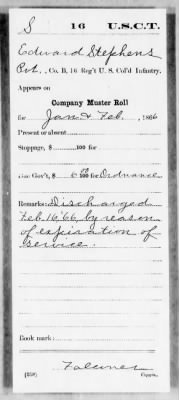 S 16 U.S.C.T.
Edward Stephens
Pvt., Co. B, 16 Reg't U. S. Col'd Infantry.
Appears on
Company Muster Roll
for Jan & Feb, 1866
Present or absent
Stoppage, $ 100 for
Due Gov't, $ 6 100 for Ordnance
Remarks: Discharged
Feb. 16, '66, by reason
of expiration of
service.
Book mark:
(358) Copyist.